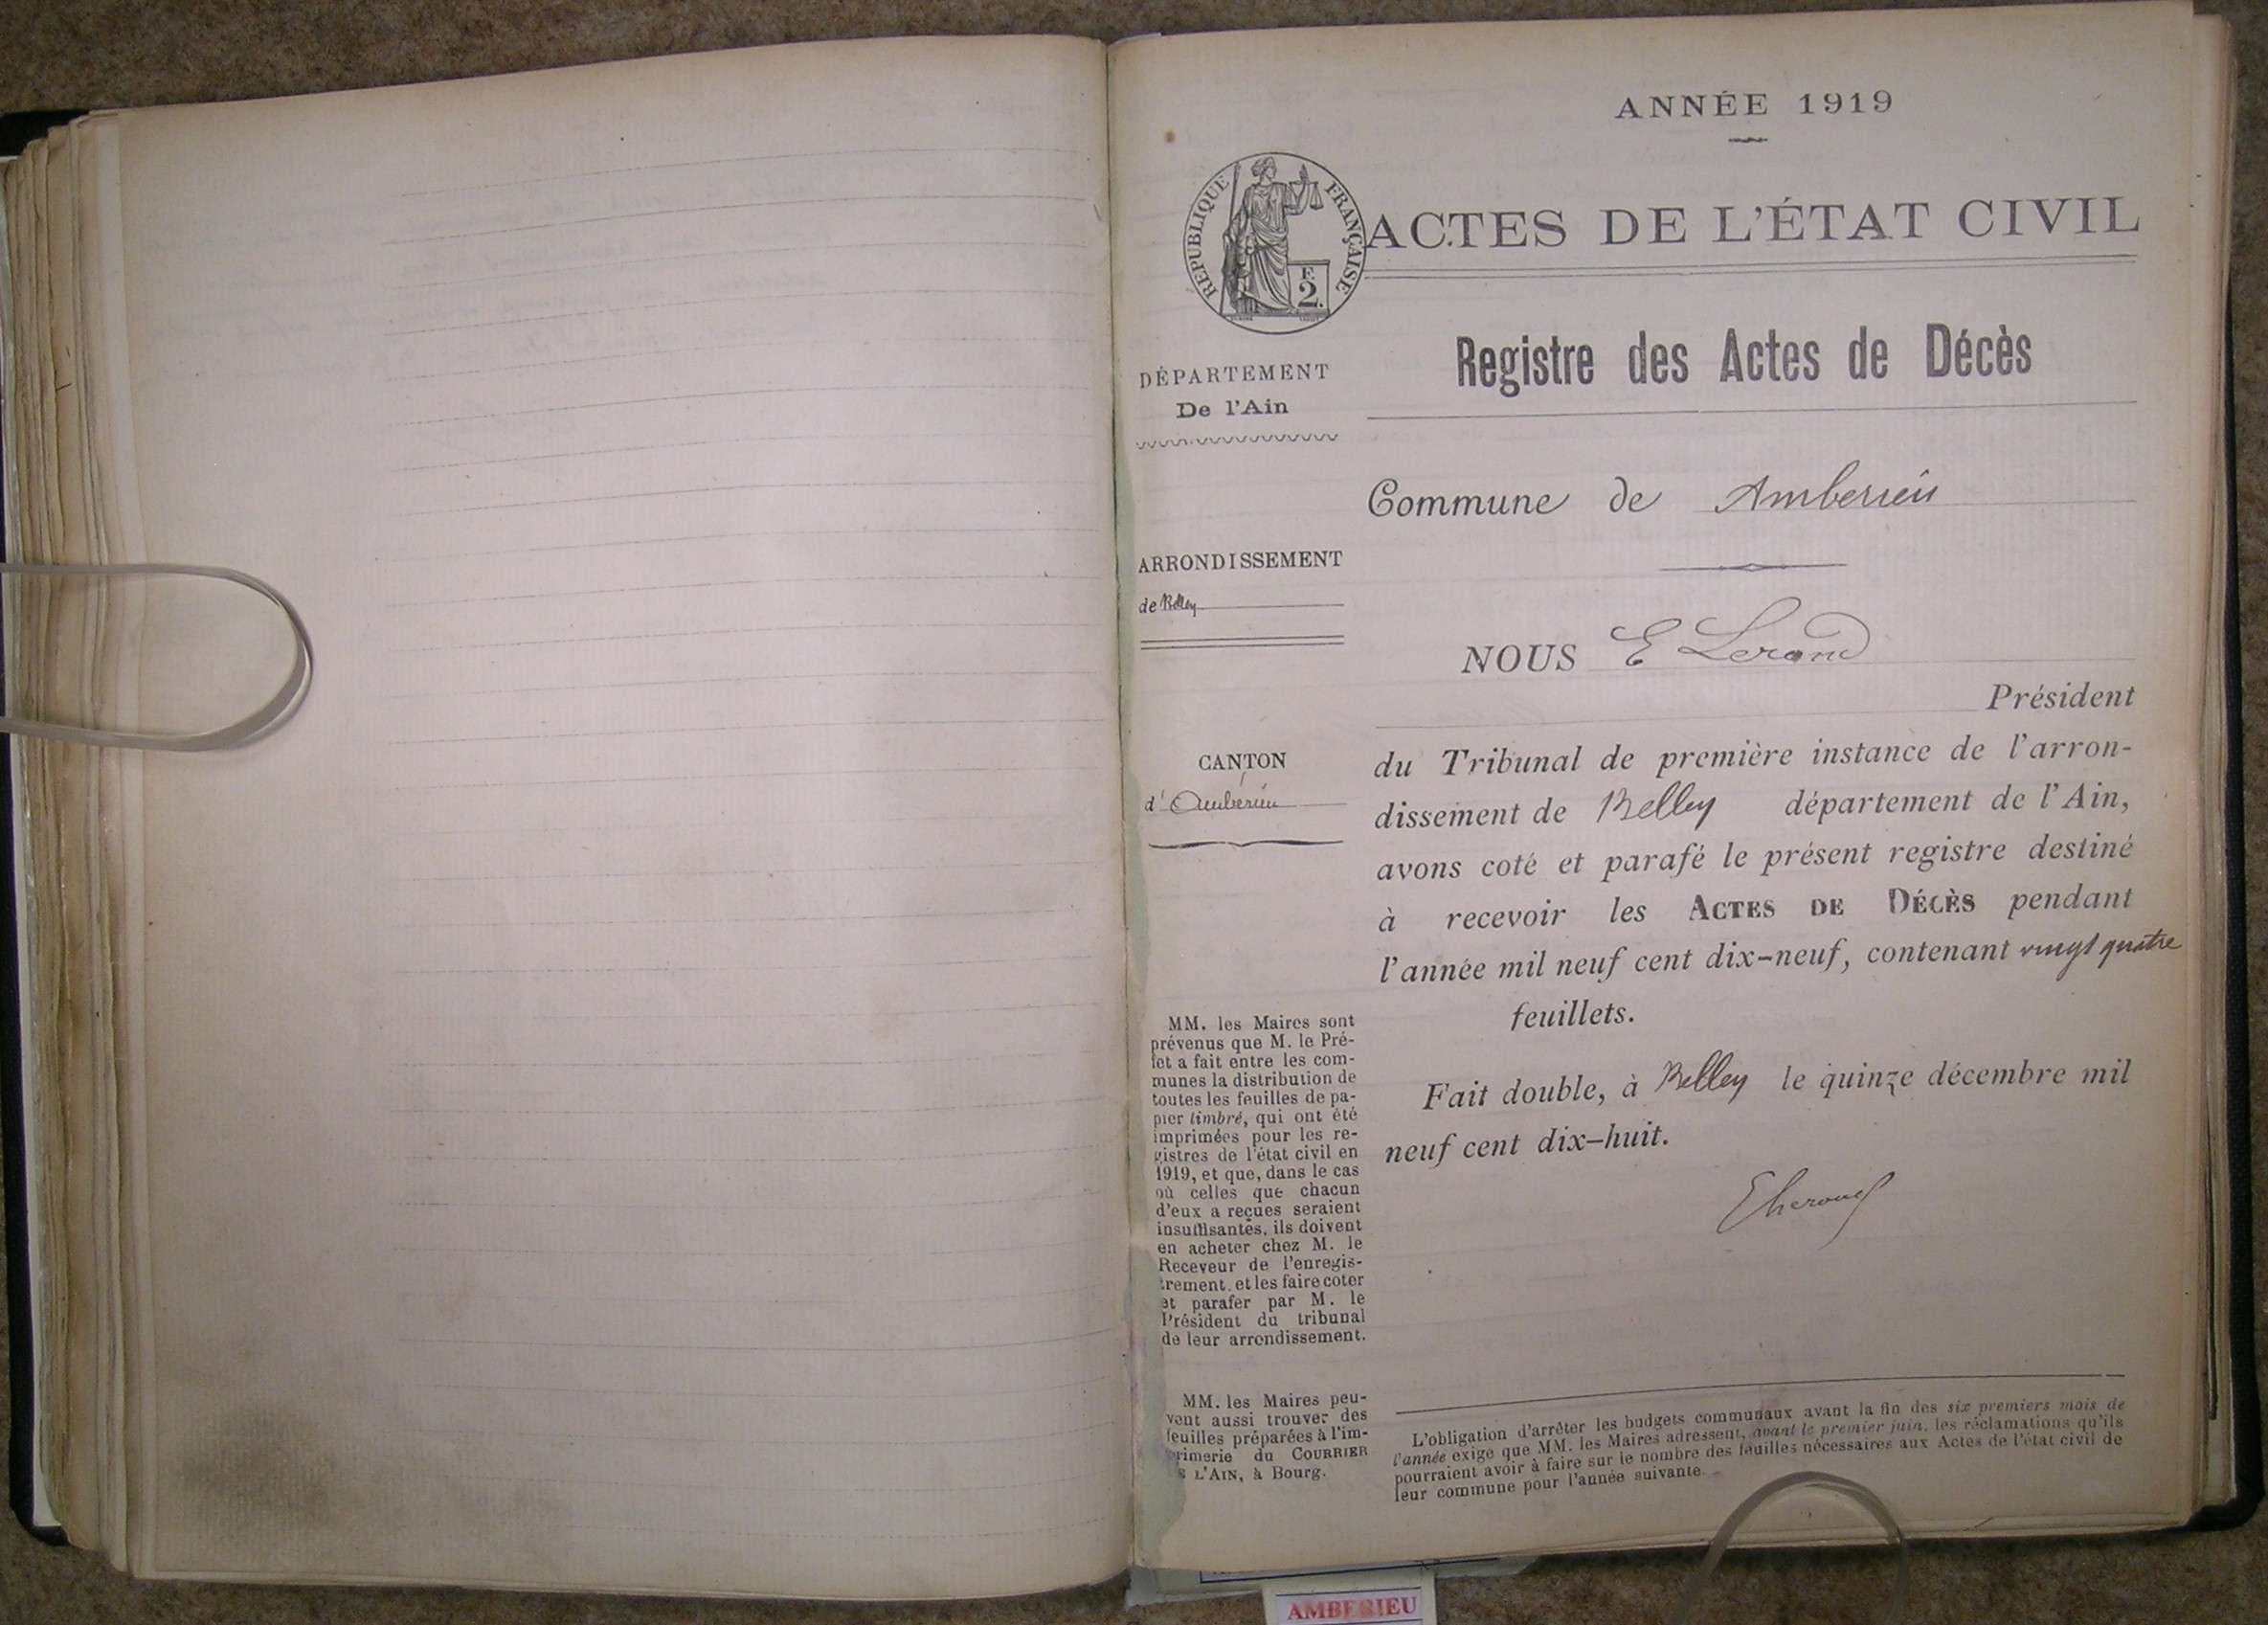 ANNÉE 1919
RÉPUBLIQUE FRANÇAISE
F.
2.
ACTES DE L'ÉTAT CIVIL
Registre des Actes de Décès
DÉPARTEMENT
De l'Ain
Commune de Amberieu
ARRONDISSEMENT
de Belley
NOUS E
Président
CANTON
d'Ambérieu
du Tribunal de première instance de l'arron-
dissement de Belley département de l'Ain,
avons coté et parafé le présent registre destiné
à recevoir les ACTES DE DÉCÈS pendant
l'année mil neuf cent dix-neuf, contenant vingt quatre
feuillets.
Fait double, à Belley le quinze décembre mil
neuf cent dix-huit.
MM. les Maires sont
prévenus que M. le Pré-
fet a fait entre les com-
munes la distribution de
toutes les feuilles de pa-
pier timbré, qui ont été
imprimées pour les re-
gistres de l'état civil en
1919, et que, dans le cas
où celles que chacun
d'eux a reçues seraient
insuffisantes, ils doivent
en acheter chez M. le
Receveur de l'enregis-
trement, et les faire coter
et parafer par M. le
Président du tribunal
de leur arrondissement.
MM. les Maires peu-
vent aussi trouver des
feuilles préparées à l'im-
primerie du COURRIER
DE L'AIN, à Bourg.
L'obligation d'arrêter les budgets communaux avant la fin des six premiers mois de
l'année exige que MM. les Maires adressent, avant le premier juin, les réclamations qu'ils
pourraient avoir à faire sur le nombre des feuilles nécessaires aux Actes de l'état civil de
leur commune pour l'année suivante.
AMBERIEU